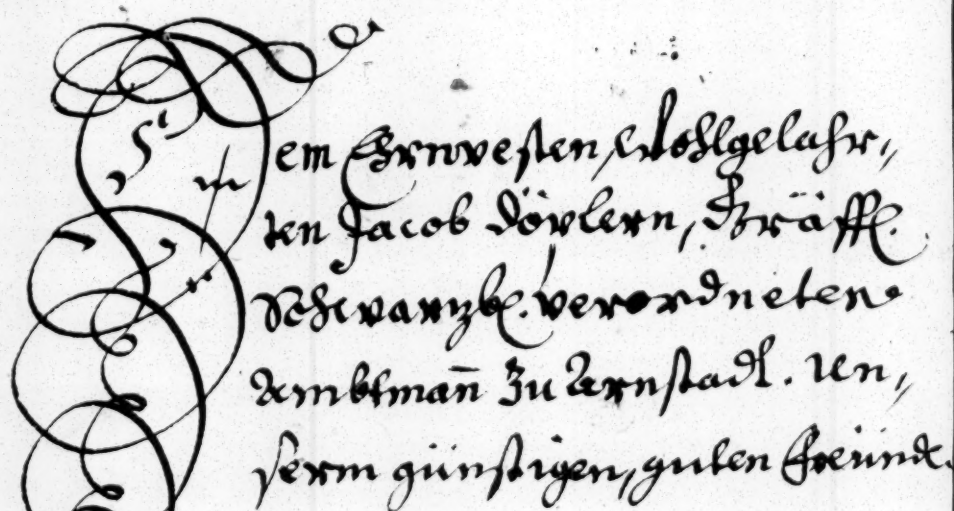 Dem Ehrnvesten, Wohlgelahr,,
ten Jacob Dörlern, Gräffl.
Schwarzb. verordneten
Ambtman̄ Zu Arnstadt. Un,,
serm günstigen, guten Freündt.